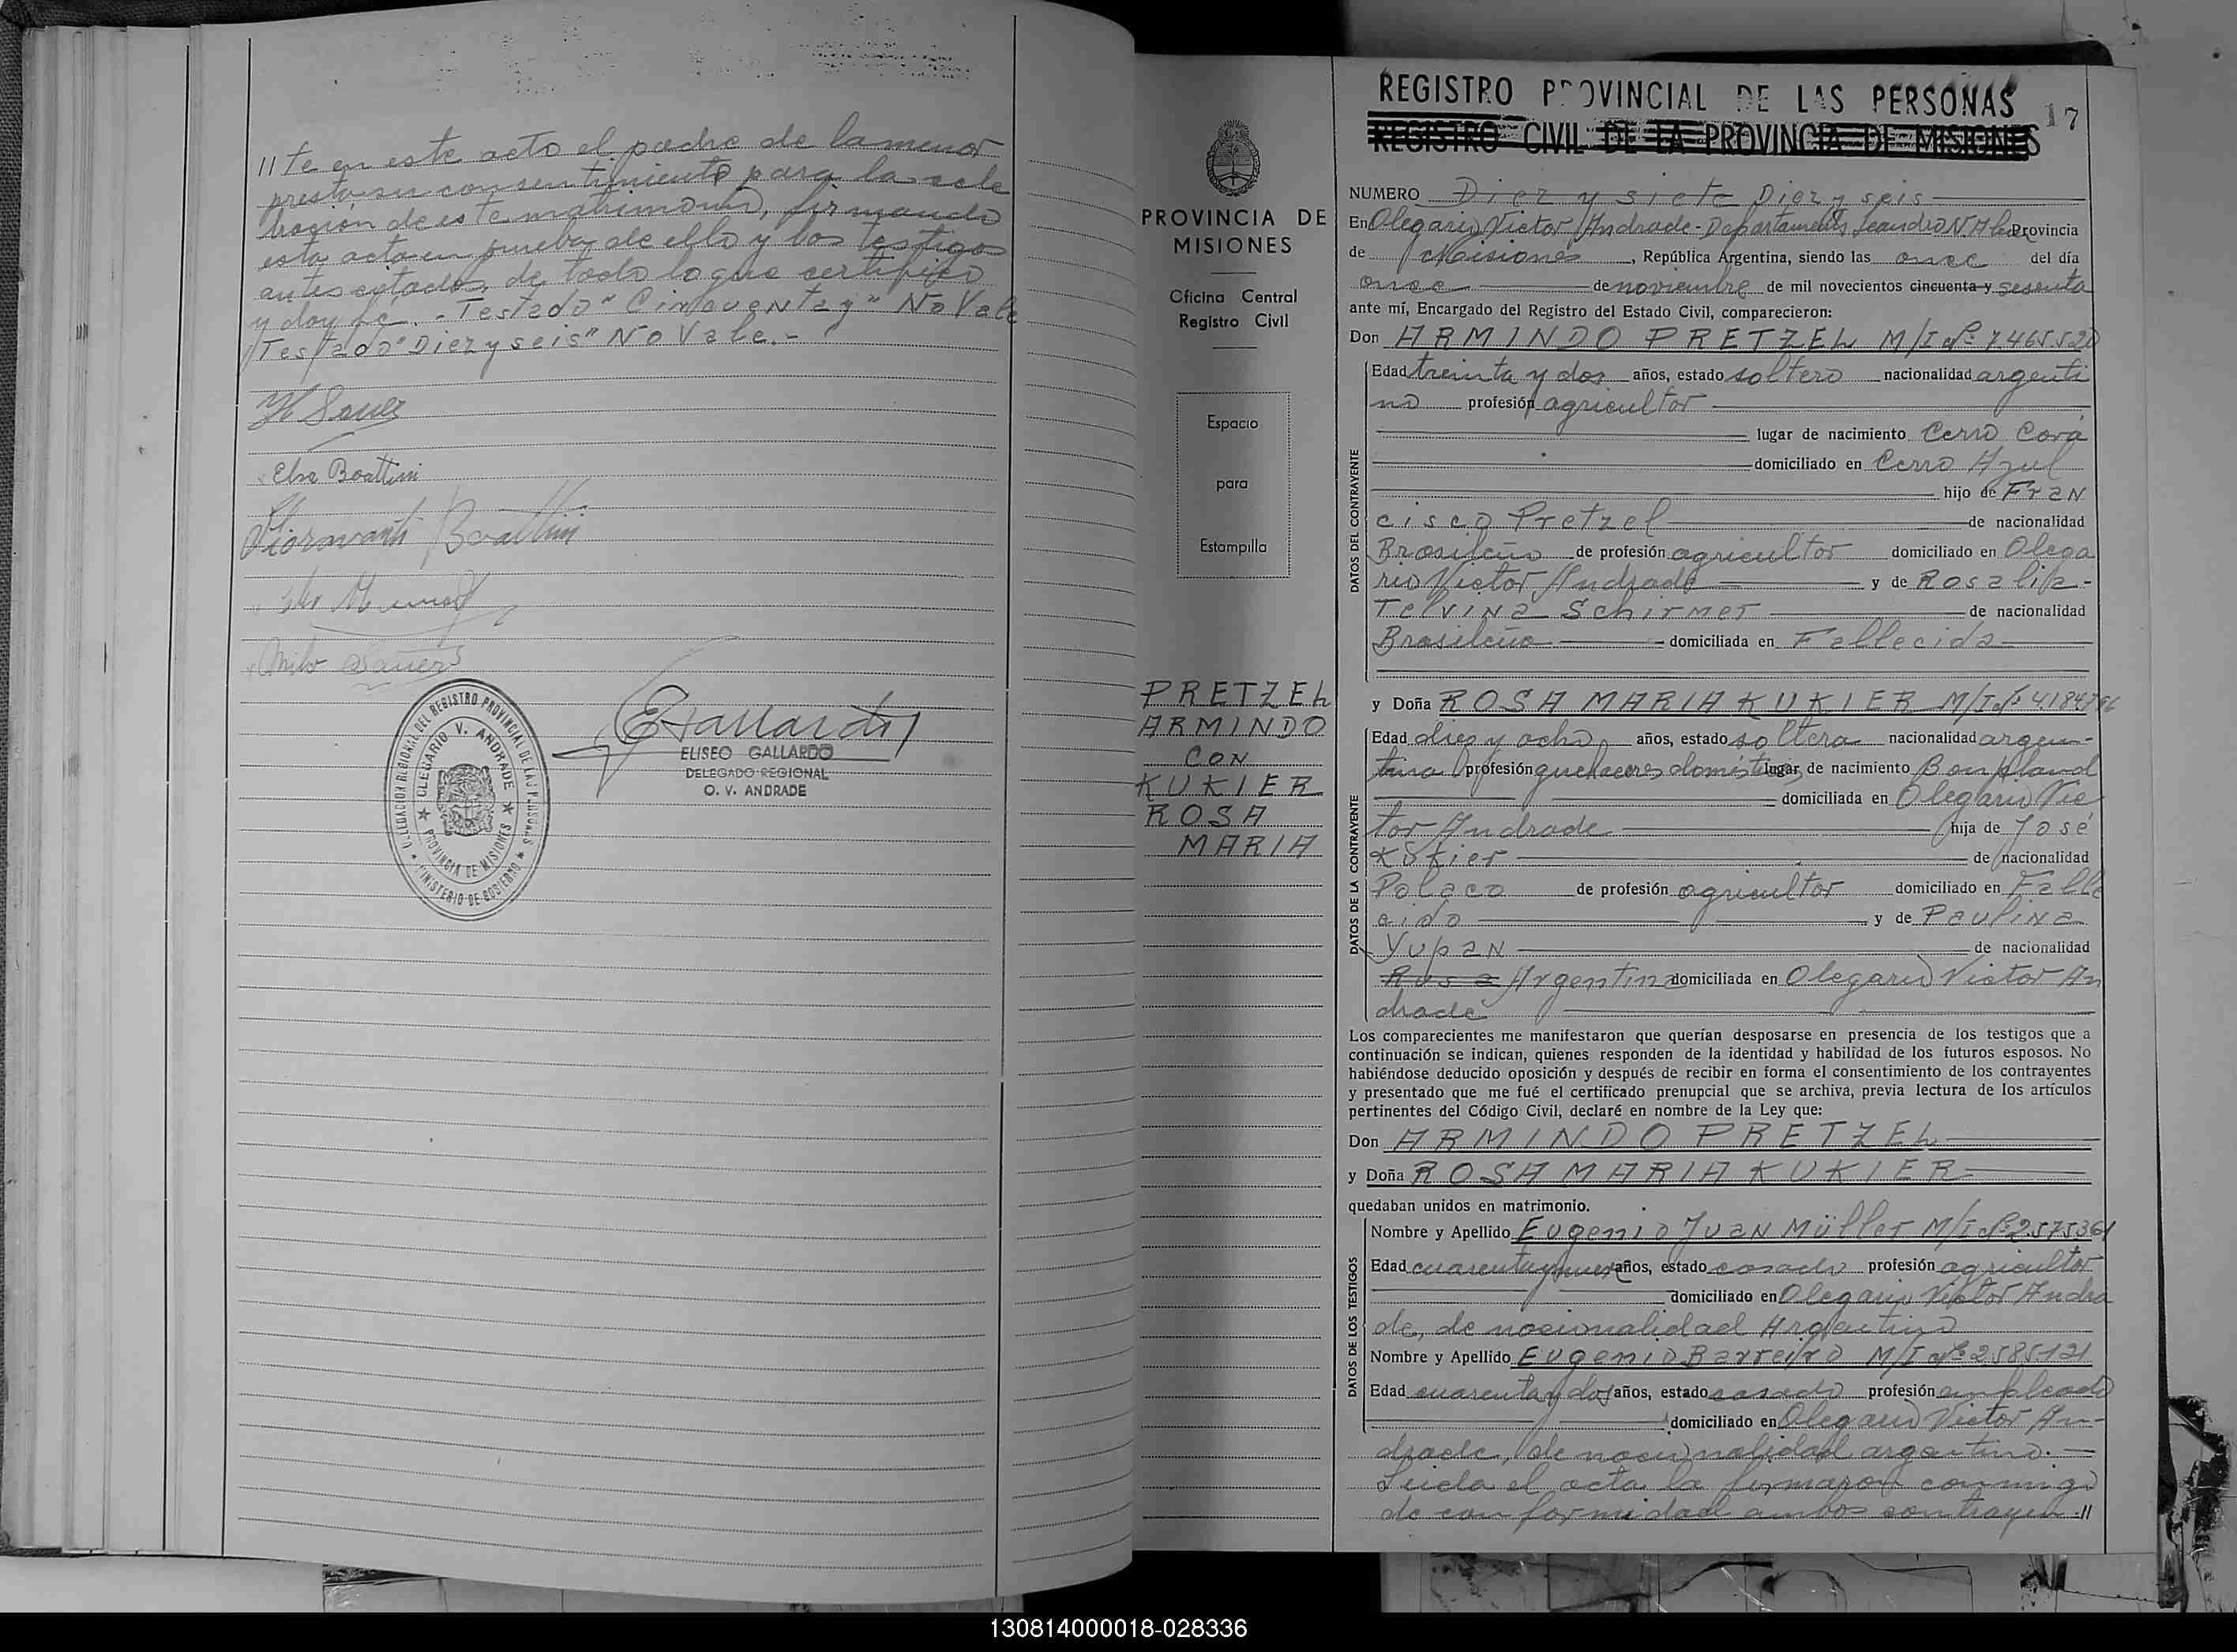 // te en este acto el padre de la menor
presta su consentimiento para la cele
bracion de este matrimonio, firmando
esta acta en prueba de ello y los testigos
antes citados, de todo lo que certifico
y doy fe. - Testado "Cincuenta y" No Vale
Testado "Diez y seis" No Vale. -
Elsa Boattini
Fioravanti Boattini
Milo Sauer
DELEGACION REGIONAL DEL REGISTRO PROVINCIAL DE LAS PERSONAS
OLEGARIO V. ANDRADE
PROVINCIA DE MISIONES
MINISTERIO DE GOBIERNO
ELISEO GALLARDO
DELEGADO REGIONAL
O. V. ANDRADE
PROVINCIA DE
MISIONES
Oficina Central
Registro Civil
Espacio
para
Estampilla
PRETZEL
ARMINDO
CON
KUKIER
ROSA
MARIA
REGISTRO PROVINCIAL DE LAS PERSONAS
17
REGISTRO CIVIL DE LA PROVINCIA DE MISIONES
NUMERO Diez y siete Diez y seis
En Olegario Victor Andrade - Departamento Leandro N. Alem Provincia
de Misiones, República Argentina, siendo las once del día
once de noviembre de mil novecientos cincuenta y sesenta
ante mí, Encargado del Registro del Estado Civil, comparecieron:
Don ARMINDO PRETZEL M/I Nº 7.465.520
DATOS DEL CONTRAYENTE
Edad treinta y dos años, estado soltero nacionalidad argenti
no profesión agricultor
lugar de nacimiento Cerro Corá
domiciliado en Cerro Azul
hijo de Fran
cisco Pretzel de nacionalidad
Brasileño de profesión agricultor domiciliado en Olega
rio Victor Andrade y de Rosalia
Telvina Schirmer de nacionalidad
Brasileña domiciliada en Fallecida
y Doña ROSA MARIA KUKIER M/I Nº
DATOS DE LA CONTRAYENTE
Edad diez y ocho años, estado soltera nacionalidad argen-
tina profesión quehaceres domésticos lugar de nacimiento Bonpland
domiciliada en Olegario Vic
tor Andrade hija de José
Kukier de nacionalidad
Polaco de profesión agricultor domiciliado en Falle
cido y de Paulina
Yupan de nacionalidad
Rusa Argentina domiciliada en Olegario Victor An
drade
Los comparecientes me manifestaron que querían desposarse en presencia de los testigos que a
continuación se indican, quienes responden de la identidad y habilidad de los futuros esposos. No
habiéndose deducido oposición y después de recibir en forma el consentimiento de los contrayentes
y presentado que me fué el certificado prenupcial que se archiva, previa lectura de los artículos
pertinentes del Código Civil, declaré en nombre de la Ley que:
Don ARMINDO PRETZEL
y Doña ROSA MARIA KUKIER
quedaban unidos en matrimonio.
DATOS DE LOS TESTIGOS
Nombre y Apellido Eugenio Juan Müller M/I Nº 2.575.361
Edad cuarenta y nueve años, estado casado profesión agricultor
domiciliado en Olegario Victor Andra
de, de nacionalidad Argentino
Nombre y Apellido Eugenio Barreiro M/I Nº 2585121
Edad cuarenta y dos años, estado casado profesión empleado
domiciliado en Olegario Victor An-
drade, de nacionalidad argentino. -
Leida el acta la firmaron conmigo
de conformidad ambos contrayen. //
130814000018-028336